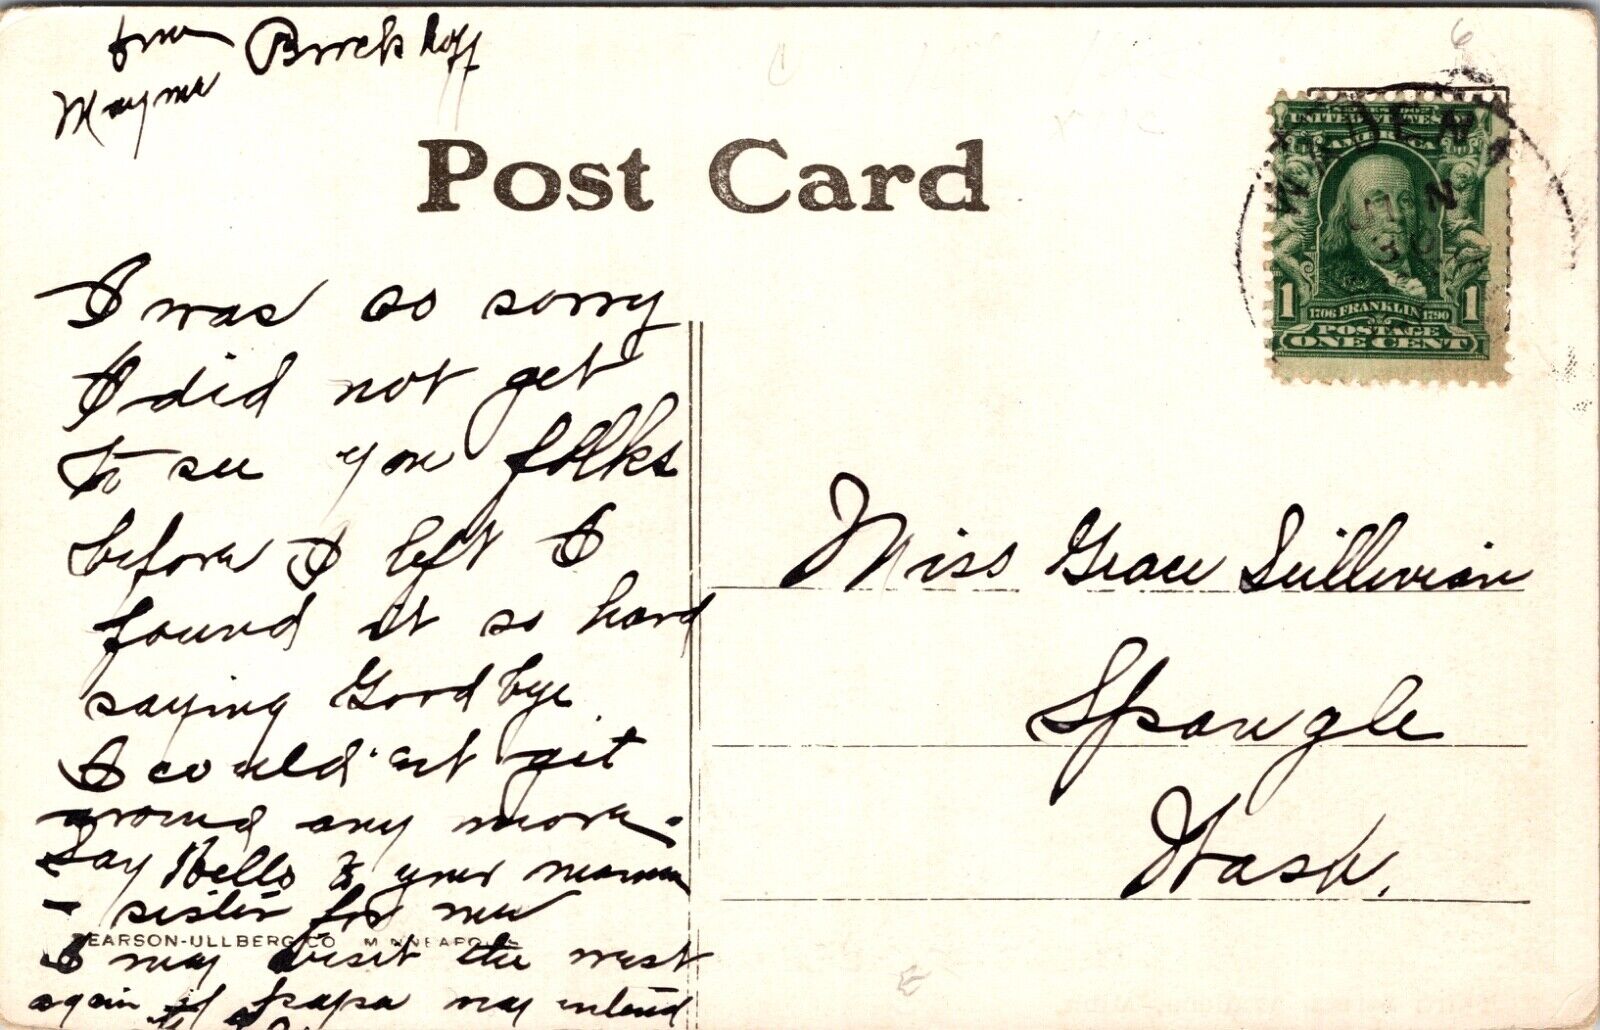 from Birckhoff
Mayme
Post Card
WADENA
JUN
30
UNITED STATES
AMERICA
1 1
1706 FRANKLIN 1790
POSTAGE
ONE CENT
I was so sorry
I did not get
to see you folks
before I left I
found it so hard
saying Good bye
I could'nt get
around any more.
Say Hello to your mamma
- sister for me
PEARSON-ULLBERG CO MINNEAPOLIS
I may visit the west
again if papa may intend
Miss Grace Sullivian
Spangle
Wash.